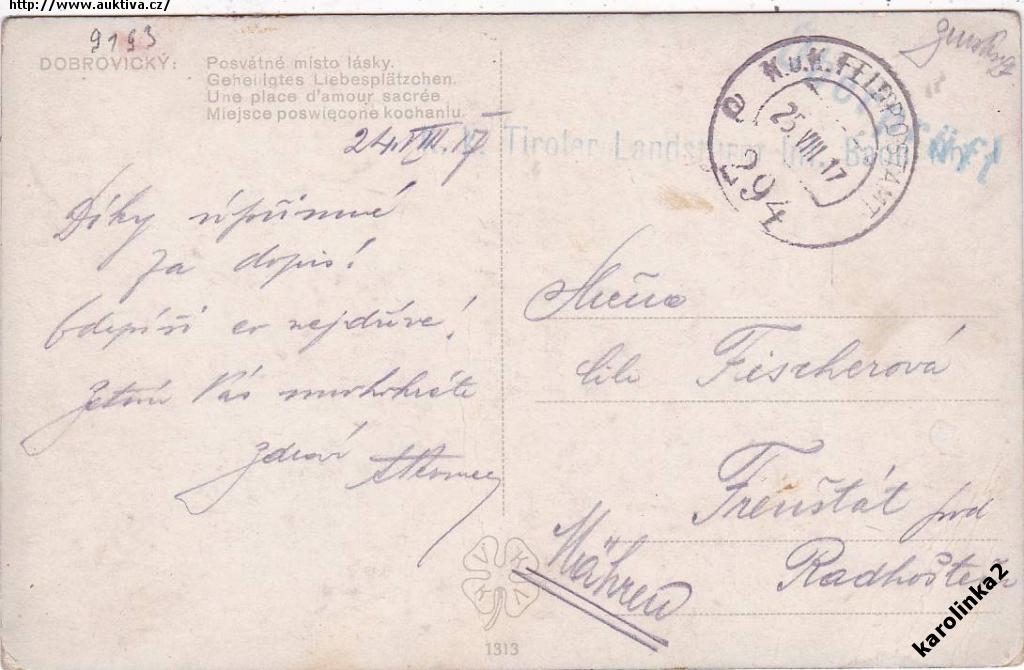 http://www.auktiva.cz/
9193
DOBROVICKÝ: Posvátné místo lásky.
Geheiligtes Liebesplätzchen.
Une place d'amour sacrée
Miejsce poswięcone kochaniu.
24. VIII. 17
K.u.K. FELDPOSTAMT
25 VIII. 17
294
Tiroler Landsturm Inf. Baon
Díky upřímné
za dopis!
Odepíši co nejdříve!
Zatím Vás mnohokráte
Zdraví
Slečna
Lila Fischerová
Frenštát pod
Radhoštěm
Mähren
1313
karolinka2